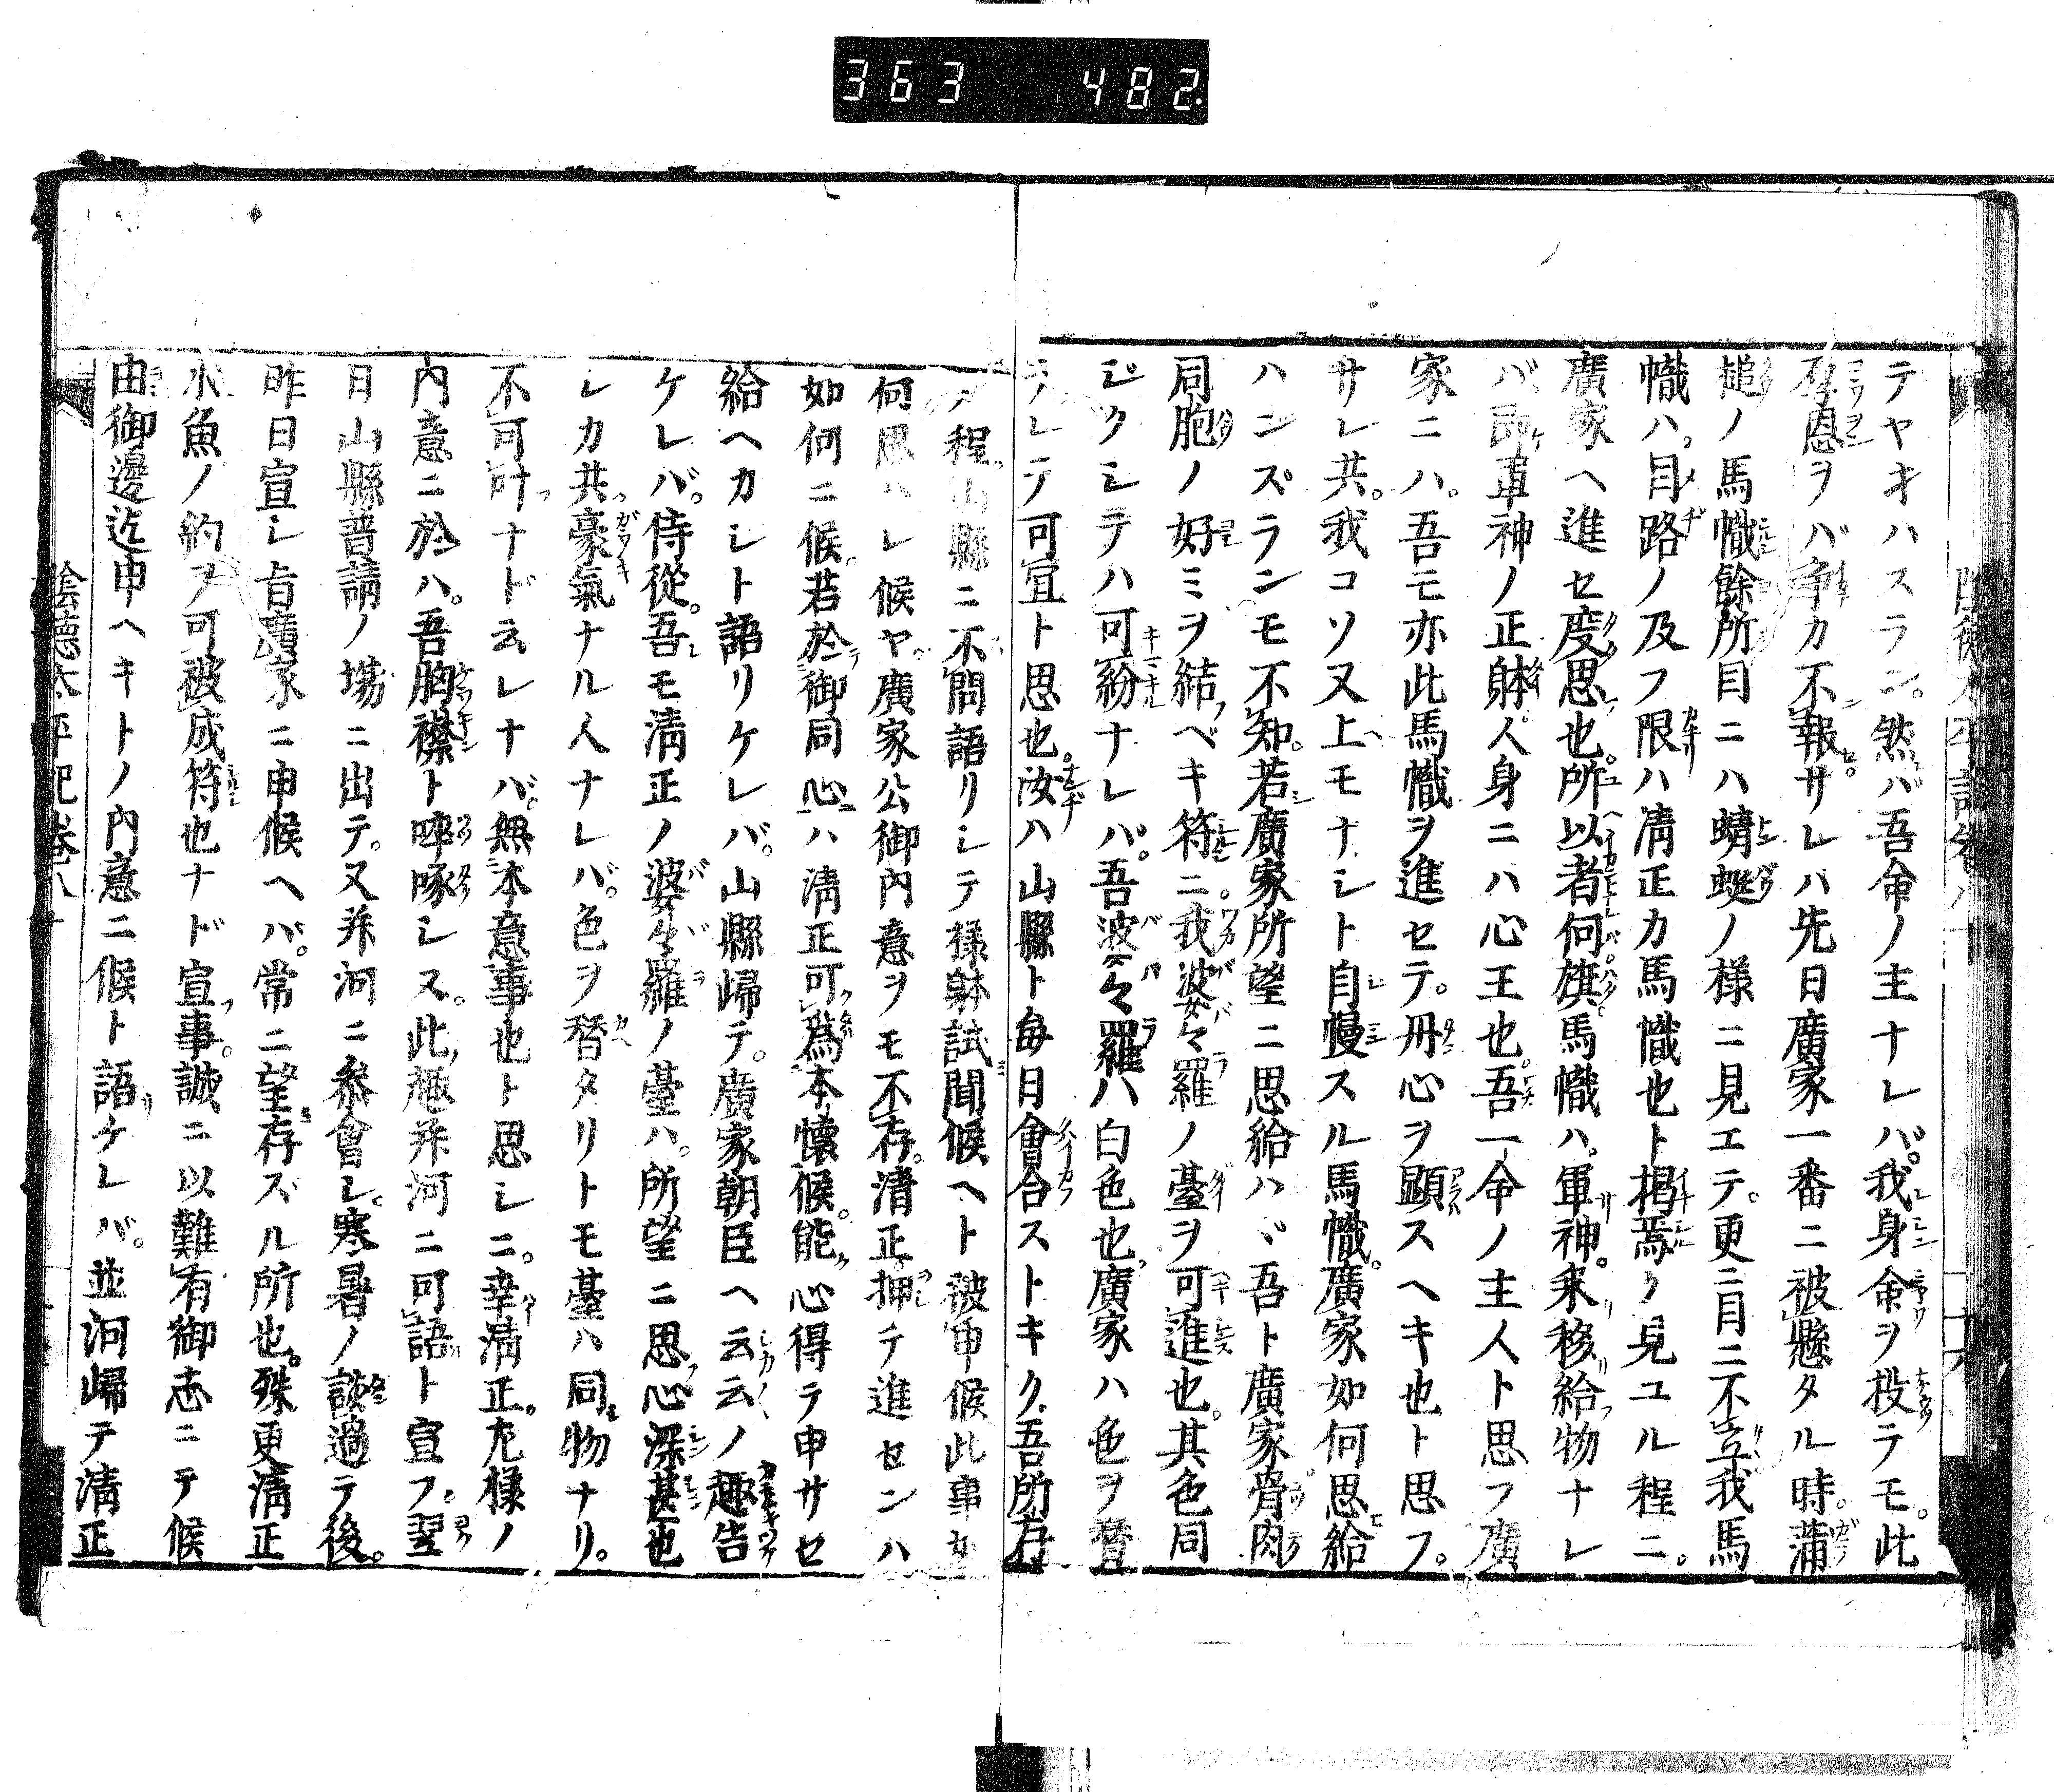 363 482
テヤオハスラン。然バ吾命ノ主ナレバ。我身命ヲ投テモ。此
恩ヲバ争カ不報サレバ先日廣家一番ニ被懸タル時。蒲
槌ノ馬幟餘所目ニハ蜻蜓ノ様ニ見エテ。更ニ目ニ不立我馬
幟ハ。目路ノ及フ限ハ清正カ馬幟也ト掲焉ク見ユル程ニ。
廣家ヘ進セ度思也。所以者何旗馬幟ハ。軍神。来移リ給物ナレ
バ即軍神ノ正躰人身ニハ心王也。吾一命ノ主人ト思フ廣
家ニハ。吾モ亦此馬幟ヲ進セテ。丹心ヲ顕スヘキ也ト思フ。
サレ共。我コソ又上モナシト自慢スル馬幟。廣家如何思給
ハンズランモ不知。若廣家所望ニ思給ハヾ吾ト廣家骨肉
同胞ノ好ミヲ結ベキ符ニ。我婆々羅ノ臺ヲ可進也。其色同
ジクシテハ可紛ナレバ。吾婆々羅ハ白色也。廣家ハ色ヲ替
ラレテ可宜ト思也。汝ハ山縣ト毎日會合ストキク。吾所存
ノ程。山縣ニ不問語リシテ様躰試聞候ヘト被申候此事如
何思ハレ候ヤ。廣家公御内意ヲモ不存。清正。押テ進センハ
如何ニ候。若於御同心ハ清正可為本懐候。能心得テ申サセ
給ヘカシト語リケレバ。山縣帰テ。廣家朝臣ヘ云云ノ趣告
ケレバ。侍従。吾モ清正ノ婆々羅ノ臺ハ。所望ニ思心深甚也
レカ共。豪氣ナル人ナレバ。色ヲ替タリトモ臺ハ同物ナリ。
不可叶ナド云レナバ。無本意事也ト思シニ。幸清正。左様ノ
内意ニ於ハ。吾胸襟ト啐啄シス。此趣并河ニ可語ト宣フ。翌
日山縣普請ノ場ニ出テ。又并河ニ参會シ。寒暑ノ談過テ後。
昨日宣シ旨廣家ニ申候ヘバ。常ニ望存ズル所也。殊更清正
水魚ノ約ヲ可被成符也ナド宣事。誠ニ以難有御志ニテ候
由御邊迄申ヘキトノ内意ニ候ト語ケレバ。並河帰テ清正
陰徳太平記巻八十